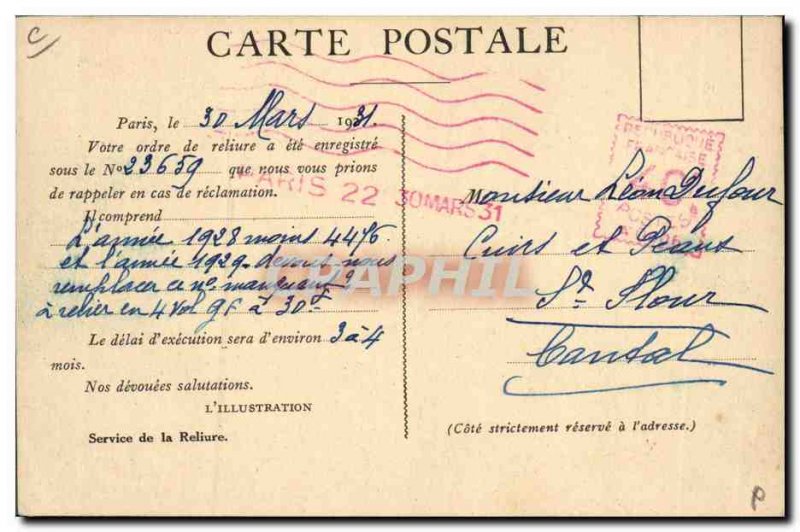 C
CARTE POSTALE
Paris, le 30 Mars 1931
Votre ordre de reliure a été enregistré
sous le No 23659 que nous vous prions
de rappeler en cas de réclamation.
Il comprend
L'année 1928 moins 4476
et l'année 1929 devons nous
remplacer ce no. manquant ?
à relier en 4 vol gf à 30 F
Le délai d'exécution sera d'environ 3 à 4
mois.
Nos dévouées salutations.
L'ILLUSTRATION
Service de la Reliure.
PARIS 22 30 MARS 31
REPUBLIQUE
FRANCAISE
40
POSTES
Monsieur Léon Dufour
Cuirs et Peaux
St Flour
Cantal
(Côté strictement réservé à l'adresse.)
CPAPHIL
p